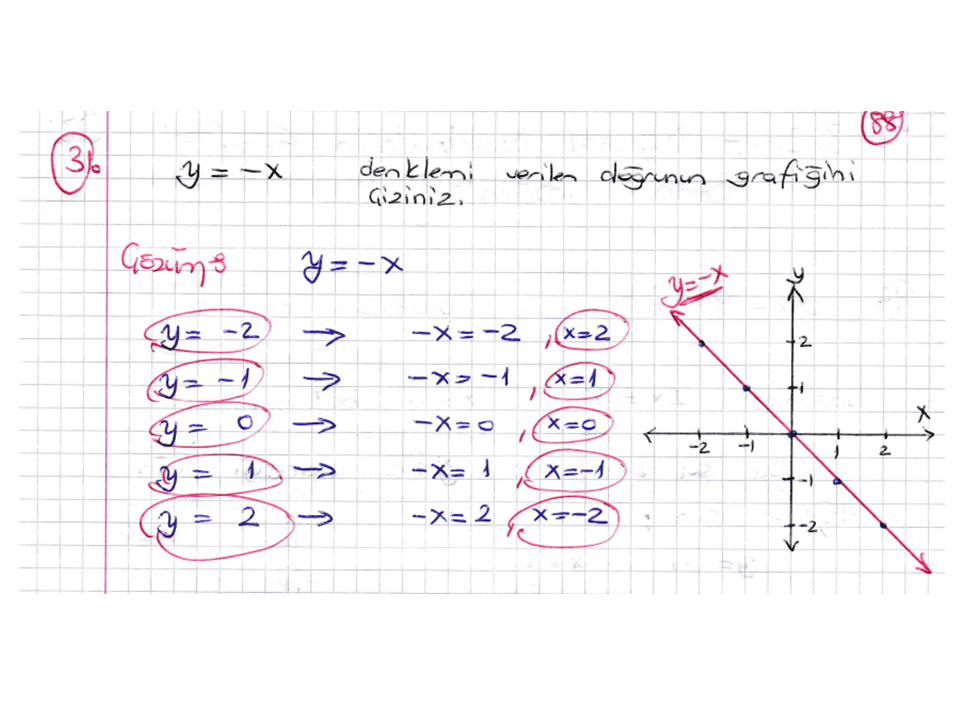 88
3) y = -x denklemi verilen doğrunun grafiğini
çiziniz.
Çözüm: y = -x
y = -2 → -x = -2 , x=2
y = -1 → -x = -1 , x=1
y = 0 → -x = 0 , x=0
y = 1 → -x = 1 , x=-1
y = 2 → -x = 2 , x=-2
y=-x
y
2
1
x
-2 -1 1 2
-1
-2